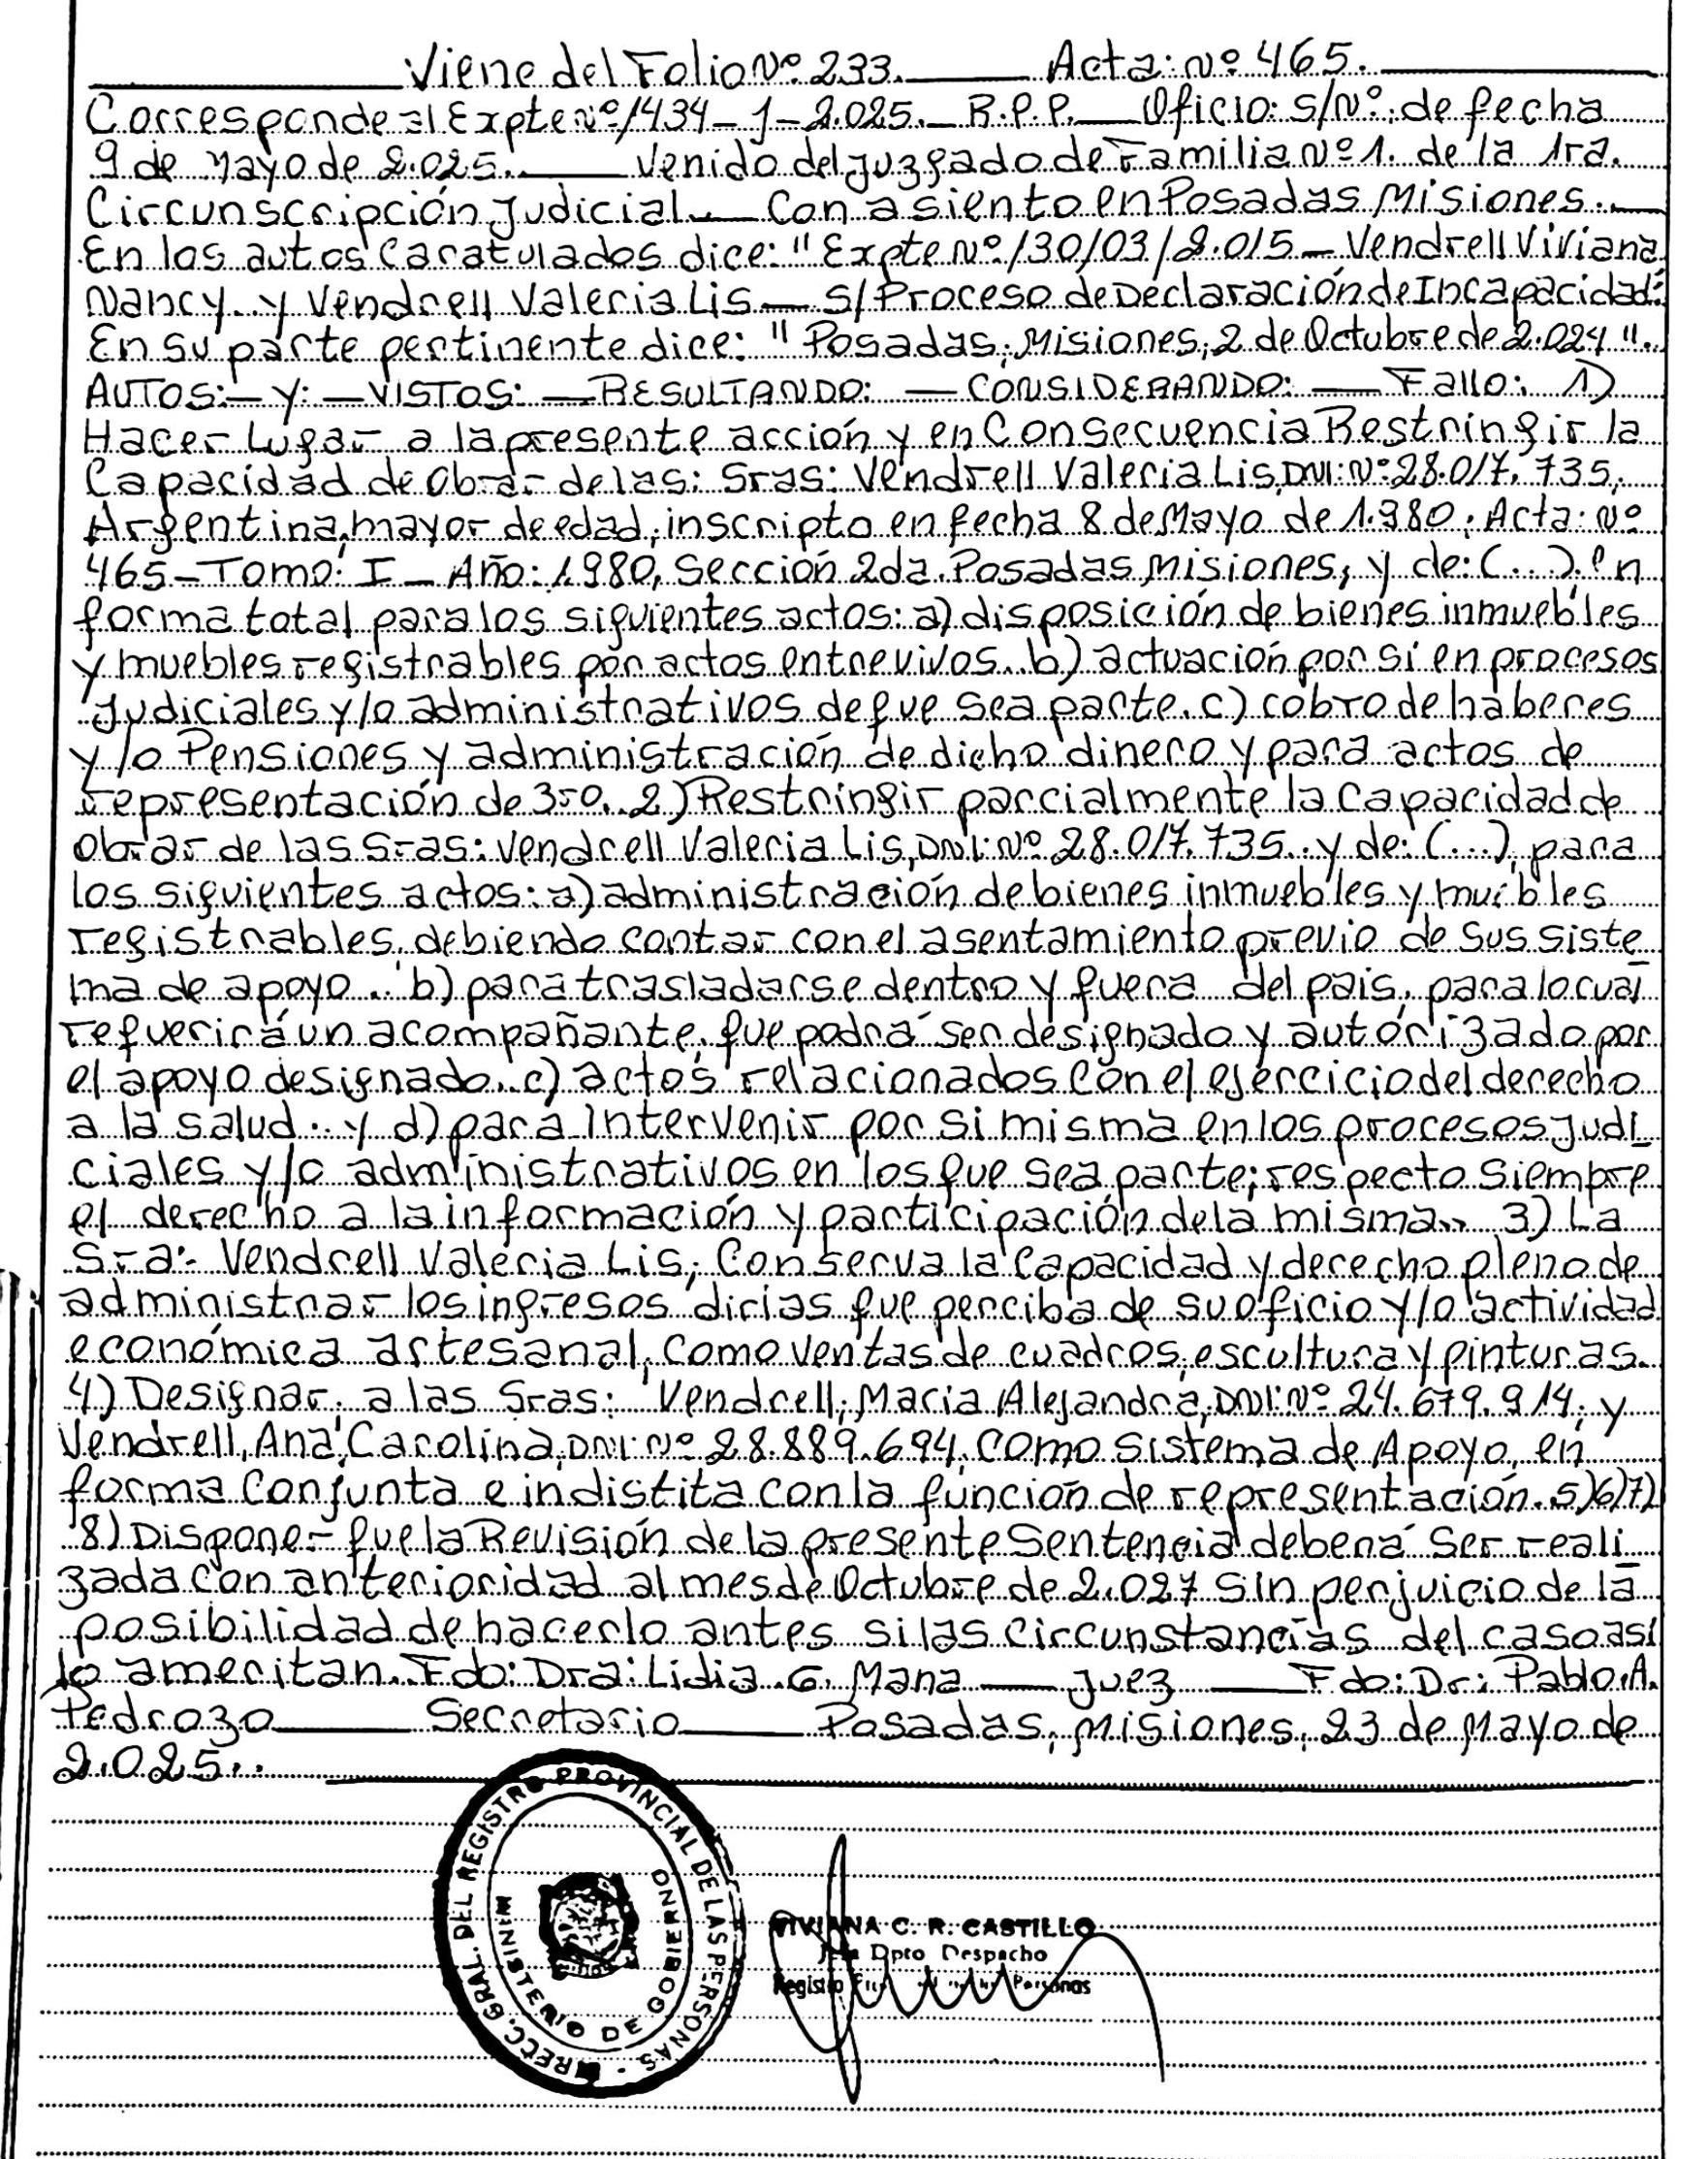 Viene del Folio Nº 233. Acta: Nº 465.
Corresponde al Expte Nº 1434-J-2.025. R.P.P. Oficio: S/Nº: de fecha
9 de Mayo de 2.025. Venido del Juzgado de Familia Nº 1. de la 1ra.
Circunscripción Judicial. Con asiento en Posadas Misiones.
En los autos Caratulados dice: "Expte Nº 13003/2.015 - Vendrell Viviana
Nancy y Vendrell Valeria Lis - S/ Proceso de Declaración de Incapacidad.
En su parte pertinente dice: "Posadas, Misiones, 2 de Octubre de 2.024".
AUTOS: Y: VISTOS: RESULTANDO: CONSIDERANDO: Fallo: 1)
Hacer Lugar a la presente acción y en Consecuencia Restringir la
Capacidad de Obrar de las: Sras: Vendrell Valeria Lis, DNI: Nº 28.017.735,
Argentina, mayor de edad, inscripto en fecha 8 de Mayo de 1.980. Acta: Nº
465-Tomo: I - Año: 1980, Sección 2da. Posadas Misiones, y de: (...), en
forma total para los siguientes actos: a) disposición de bienes inmuebles
y muebles registrables por actos entre vivos. b) actuación por si en procesos
Judiciales y/o administrativos de que sea parte. c) cobro de haberes
y/o Pensiones y administración de dicho dinero y para actos de
representación de 3ro. 2) Restringir parcialmente la Capacidad de
obrar de las Sras: Vendrell Valeria Lis, DNI: Nº 28.017.735. y de: (...), para
los siguientes actos: a) administración de bienes inmuebles y muebles
registrables, debiendo contar con el asentamiento previo de sus siste
ma de apoyo. b) para trasladarse dentro y fuera del pais, para lo cual
requerirá un acompañante, que podrá ser designado y autorizado por
el apoyo designado. c) actos relacionados con el ejercicio del derecho
a la salud. y d) para intervenir por si misma en los procesos judi
ciales y/o administrativos en los que sea parte; respecto siempre
el derecho a la información y participación de la misma. 3) La
Sra: Vendrell Valeria Lis, Conserva la Capacidad y derecho pleno de
administrar los ingresos dirias que perciba de su oficio y/o actividad
económica artesanal, como ventas de cuadros, escultura y pinturas.
4) Designar, a las Sras: Vendrell, Maria Alejandra, DNI: Nº 24.679.914, y
Vendrell, Ana Carolina, DNI: Nº 28.889.694, como Sistema de Apoyo, en
forma Conjunta e indistita con la función de representación. 5)6)7)
8) Disponer que la Revisión de la presente Sentencia deberá ser reali
zada con anterioridad al mes de Octubre de 2.027 sin perjuicio de la
posibilidad de hacerlo antes si las circunstancias del caso asi
lo ameritan. Fdo: Dra: Lidia G. Mana Juez Fdo: Dr: Pablo A.
Pedrozo Secretario Posadas, Misiones, 23 de Mayo de
2.025.
DIRECC. GRAL. DEL REGISTRO PROVINCIAL DE LAS PERSONAS
MINISTERIO DE GOBIERNO
VIVIANA C. R. CASTILLO
Jefa Dpto Despacho
Registro Personas